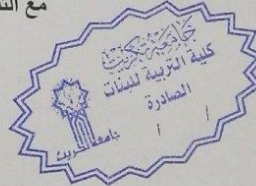 مع
جامعة تكريت
كلية التربية للبنات
الصادرة
/ /
جامعة تكريت